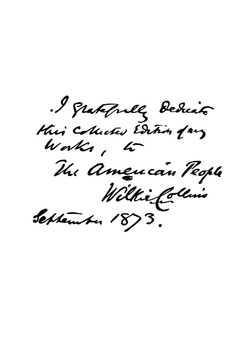 I gratefully Dedicate
this Collected Edition of my
Works, to
The American People
Wilkie Collins
September 1873.